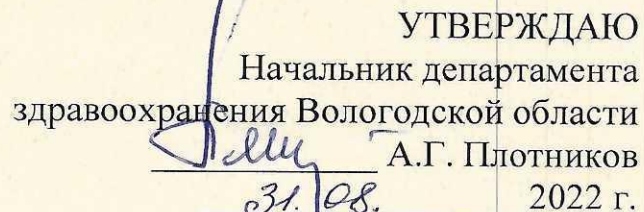 УТВЕРЖДАЮ
Начальник департамента
здравоохранения Вологодской области
А.Г. Плотников
31.08. 2022 г.